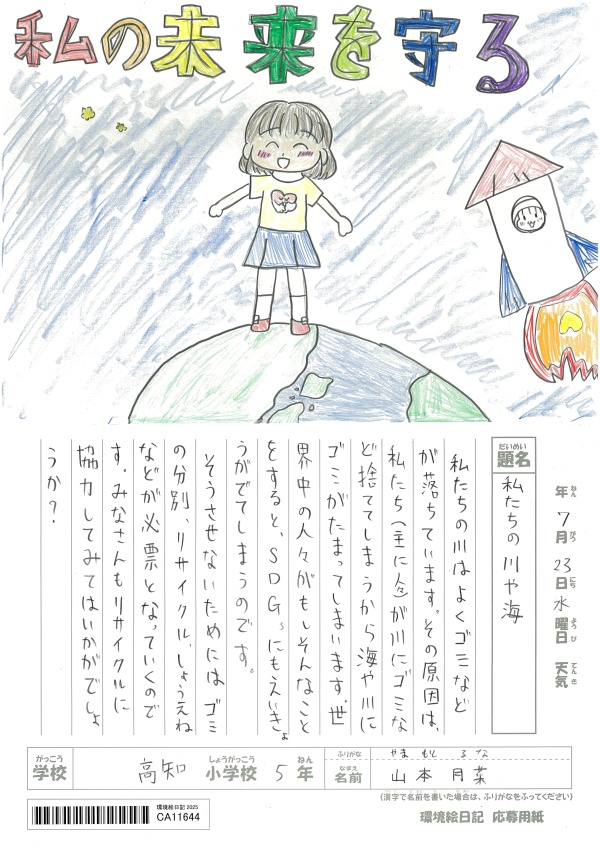 私の未来を守る
年ねん
7月がつ
23日にち
水曜日ようび
天気てんき
題名だいめい
私たちの川や海
私たちの川はよくゴミなど
が落ちています。その原因は、
私たち(主に人 )が川にゴミな
ど捨ててしまうから海や川に
ゴミがたまってしまいます。世
界中の人々がもしそんなこと
をすると、SDGsにもえいきょ
うがでてしまうのです。
そうさせないためにはゴミ
の分別、リサイクル、しょうえね
などが必票となっていくので
す。みなさんもリサイクルに
協力してみてはいかがでしょ
うか?
がっこう
学校
高知
しょうがっこう
小学校
5
ねん
年
ふりがな
やま もと る な
なまえ
名前
山本 月菜
(漢字で名前を書いた場合は、ふりがなをふってください)
環境絵日記 2025
CA11644
環境絵日記 応募用紙